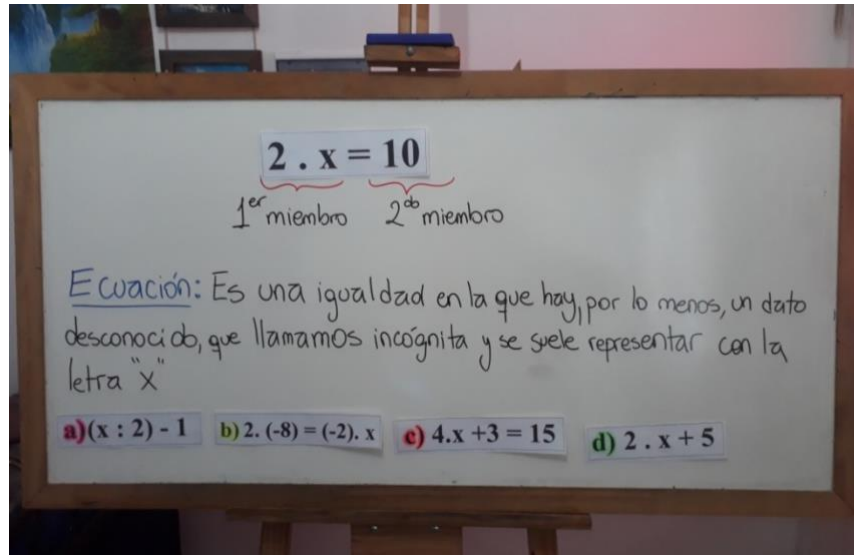 2 . x = 10
1er miembro 2do miembro
Ecuación: Es una igualdad en la que hay, por lo menos, un dato
desconocido, que llamamos incógnita y se suele representar con la
letra "x"
a)(x : 2) - 1 b) 2. (-8) = (-2). x c) 4.x +3 = 15 d) 2 . x + 5